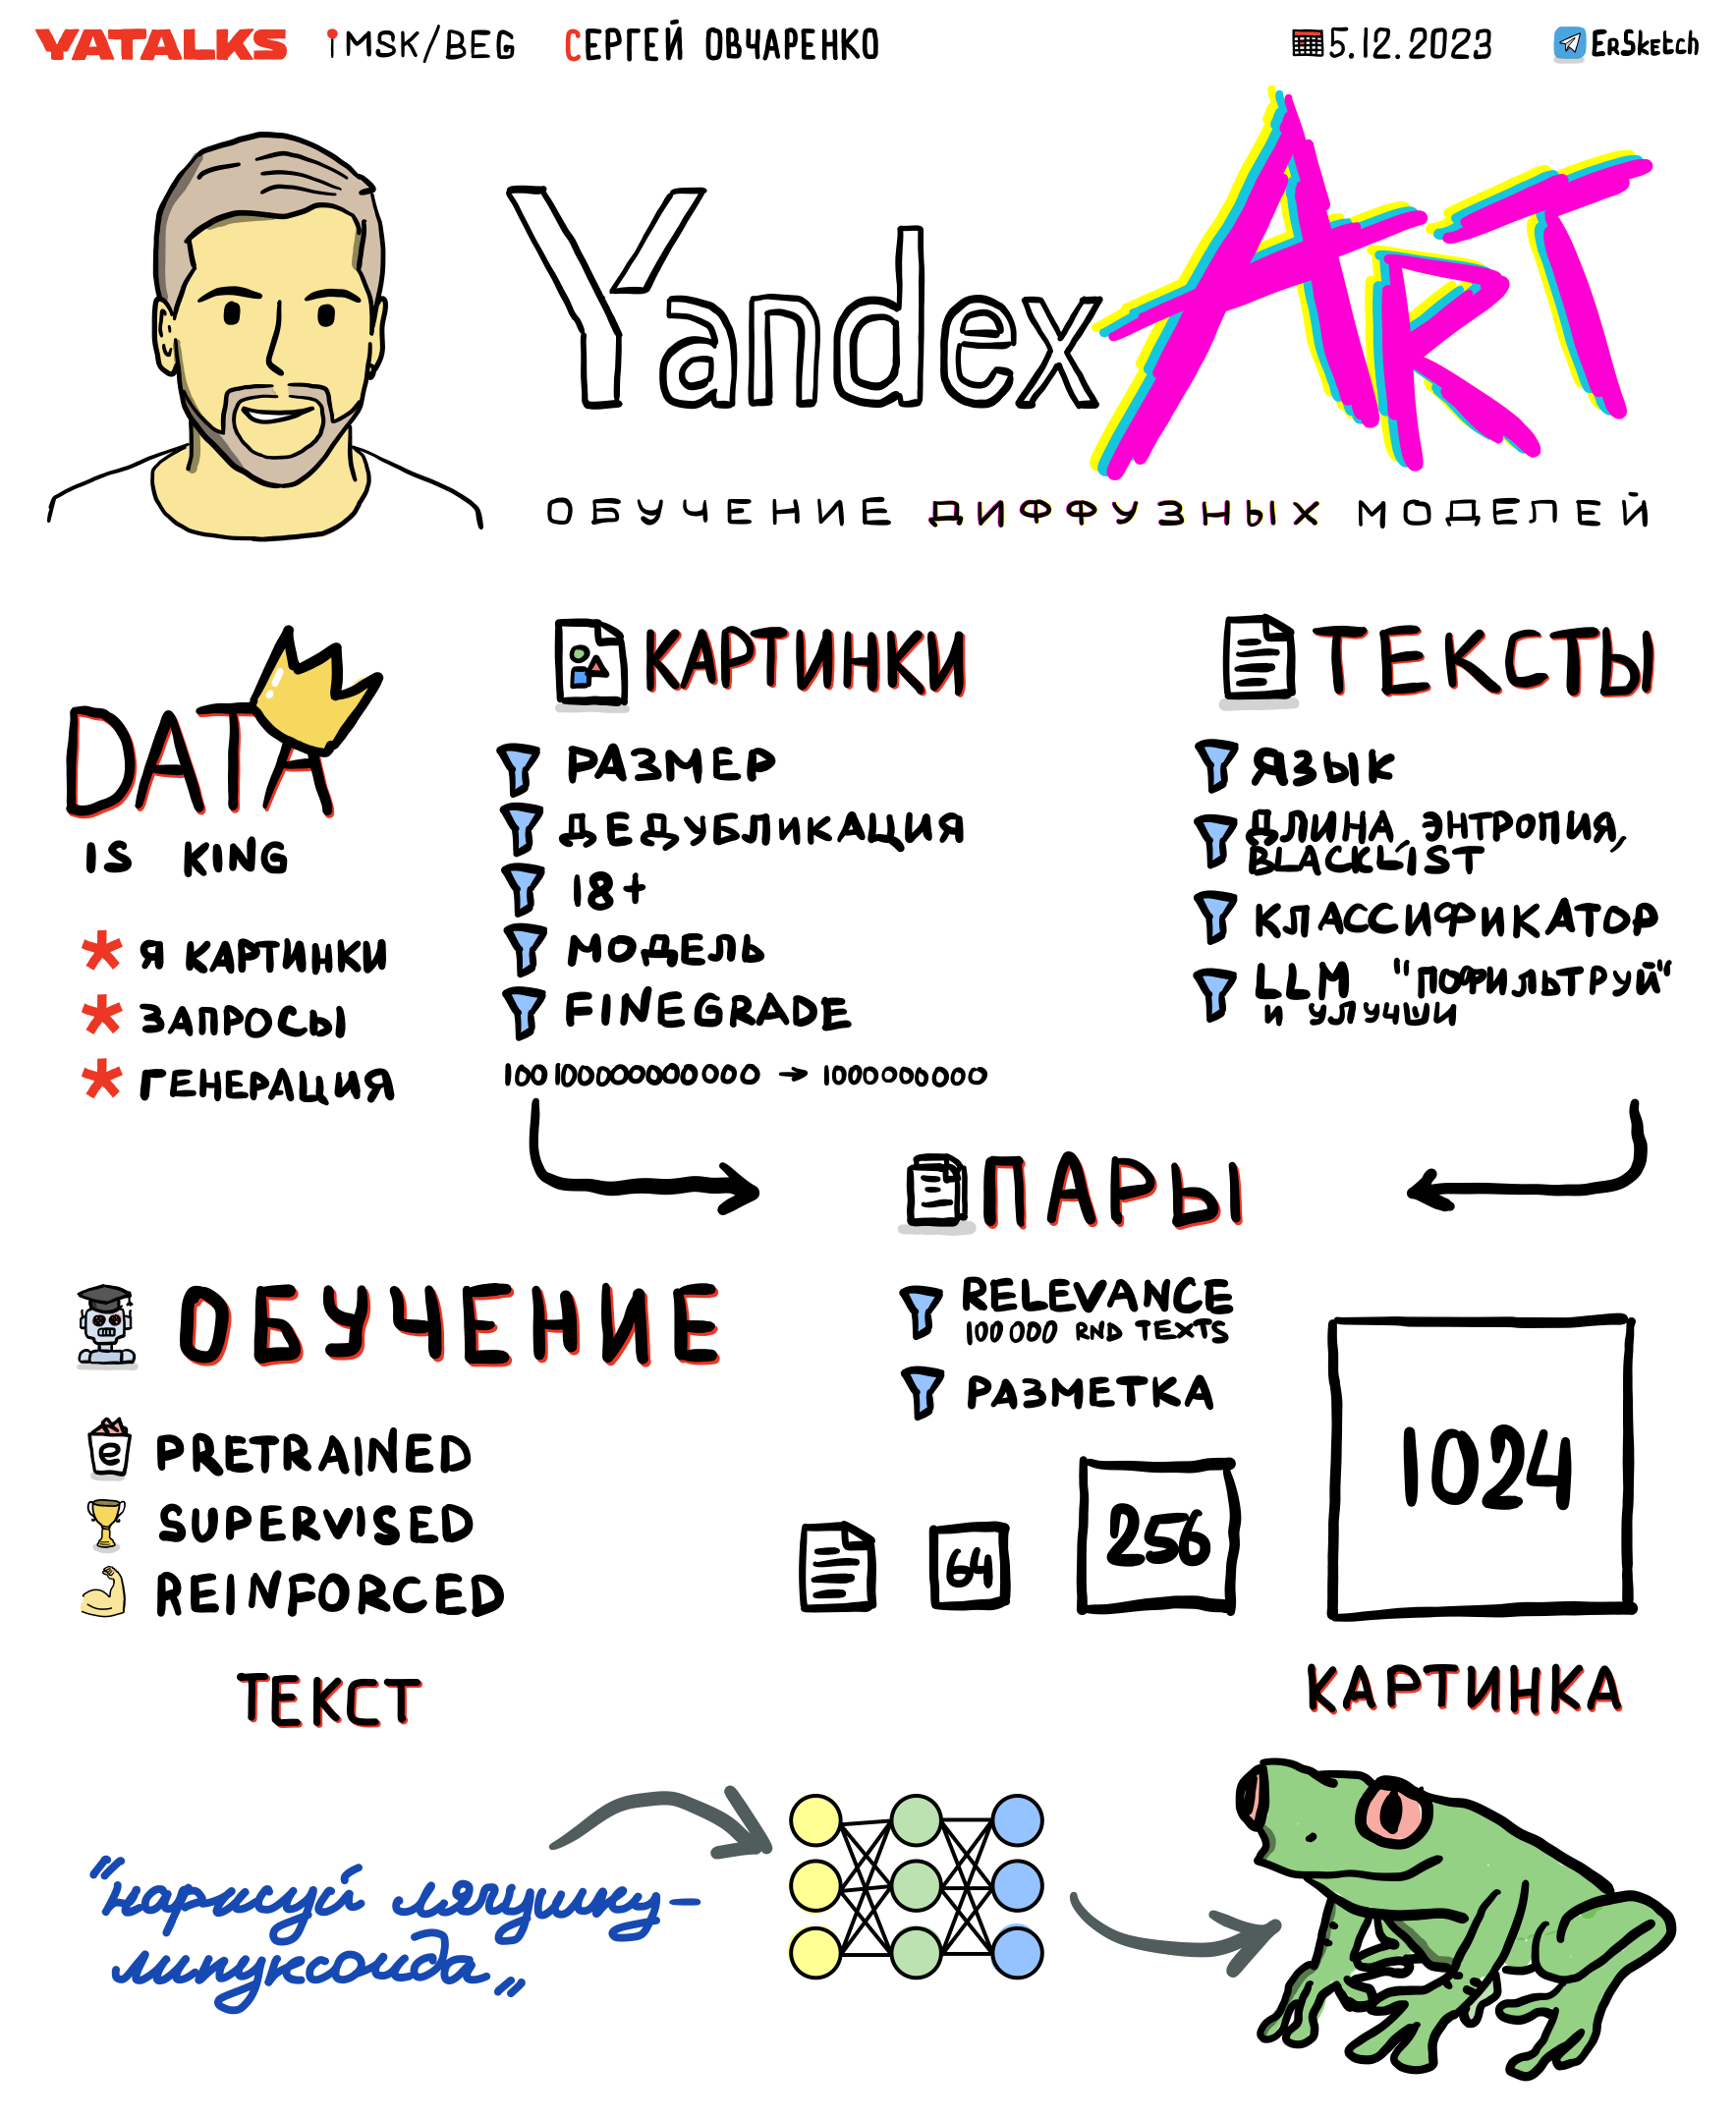 YATALKS MSK/BEG СЕРГЕЙ ОВЧАРЕНКО 5.12.2023 ERSKETCH
Yandex ART
ОБУЧЕНИЕ ДИФФУЗНЫХ МОДЕЛЕЙ
DATA
IS KING
* Я КАРТИНКИ
* ЗАПРОСЫ
* ГЕНЕРАЦИЯ
КАРТИНКИ
РАЗМЕР
ДЕДУБЛИКАЦИЯ
18+
МОДЕЛЬ
FINEGRADE
→ 1000000000
ТЕКСТЫ
ЯЗЫК
ДЛИНА, ЭНТРОПИЯ,
BLACKLIST
КЛАССИФИКАТОР
LLM "ПОФИЛЬТРУЙ"
И УЛУЧШИ
ПАРЫ
RELEVANCE
100 000 RND TEXTS
РАЗМЕТКА
ОБУЧЕНИЕ
e PRETRAINED
SUPERVISED
REINFORCED
64
256
1024
ТЕКСТ
КАРТИНКА
"нарисуй лягушку-
линуксоида"